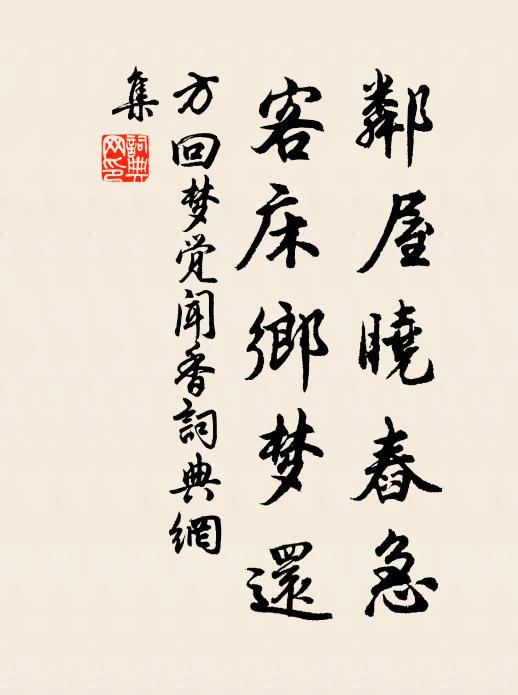 鄰屋曉舂急
客床鄉梦還
方回梦觉闻香詞典網
集
詞典
网印